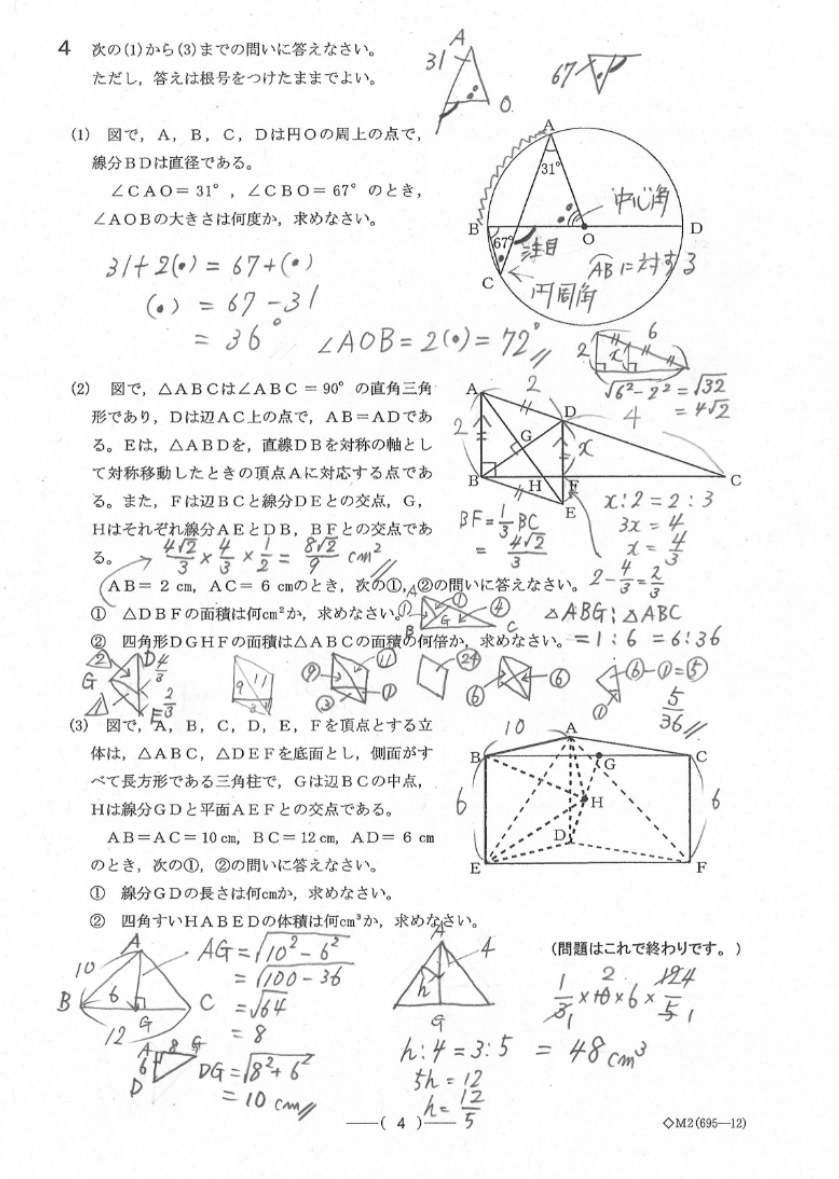 4 次の(1)から(3)までの問いに答えなさい。
ただし，答えは根号をつけたままでよい。
A
31
O
67
(1) 図で，A，B，C，Dは円Oの周上の点で，
線分BDは直径である。
∠CAO＝31°，∠CBO＝67°のとき，
∠AOBの大きさは何度か，求めなさい。
A
31°
中心角
B
O
D
67°
注目
C
円周角
ABに対する
31+2(•)=67+(•)
(•) = 67-31
= 36°
∠AOB=2(•)=72°
2
x
6
√6²-2² = √32
= 4√2
(2) 図で，△ABCは∠ABC＝90°の直角三角
形であり，Dは辺AC上の点で，AB＝ADであ
る。Eは，△ABDを，直線DBを対称の軸とし
て対称移動したときの頂点Aに対応する点であ
る。また，Fは辺BCと線分DEとの交点，G，
Hはそれぞれ線分AEとDB，BFとの交点であ
る。
A
2
D
4
2
G
x
B
H
F
C
E
BF=1/3 BC
= 4√2/3
x:2=2:3
3x=4
x=4/3
2-4/3=2/3
4√2/3 × 4/3 × 1/2 = 8√2/9 cm²
AB＝2cm，AC＝6cmのとき，次の①，②の問いに答えなさい。
① △DBFの面積は何cm²か，求めなさい。
A
①
①
④
G
B
C
△ABG:△ABC
② 四角形DGHFの面積は△ABCの面積の何倍か，求めなさい。
=1:6 =6:36
②
D
4/3
G
2/3
E
9
11
3
1
⑨
⑪
③
①
㉔
⑥
⑥
⑥-①=⑤
①
5/36
(3) 図で，A，B，C，D，E，Fを頂点とする立
体は，△ABC，△DEFを底面とし，側面がす
べて長方形である三角柱で，Gは辺BCの中点，
Hは線分GDと平面AEFとの交点である。
AB＝AC＝10cm，BC＝12cm，AD＝6cm
のとき，次の①，②の問いに答えなさい。
① 線分GDの長さは何cmか，求めなさい。
② 四角すいHABEDの体積は何cm³か，求めなさい。
10
A
B
G
C
6
H
6
D
E
F
A
10
B
6
G
C
12
AG=√10²-6²
=√100-36
=√64
=8
A
8
G
6
D
DG=√8²+6²
=10 cm
A
4
h
G
h:4=3:5
5h=12
h=12/5
（問題はこれで終わりです。）
= 48cm³
——( 4 )——
◇M2(695—12)